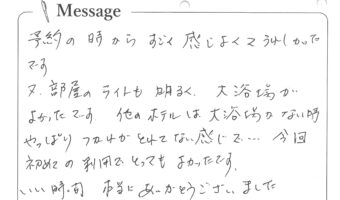 Message
予約の時から すごく 感じよくて うれしかった
です
又、部屋のライトも 明るく、大浴場が
よかったです 他のホテルは大浴場がない時
やっぱり つかれがとれてない感じで… 今回
初めての利用で とっても よかったです。
いい時間 本当に ありがとうございました